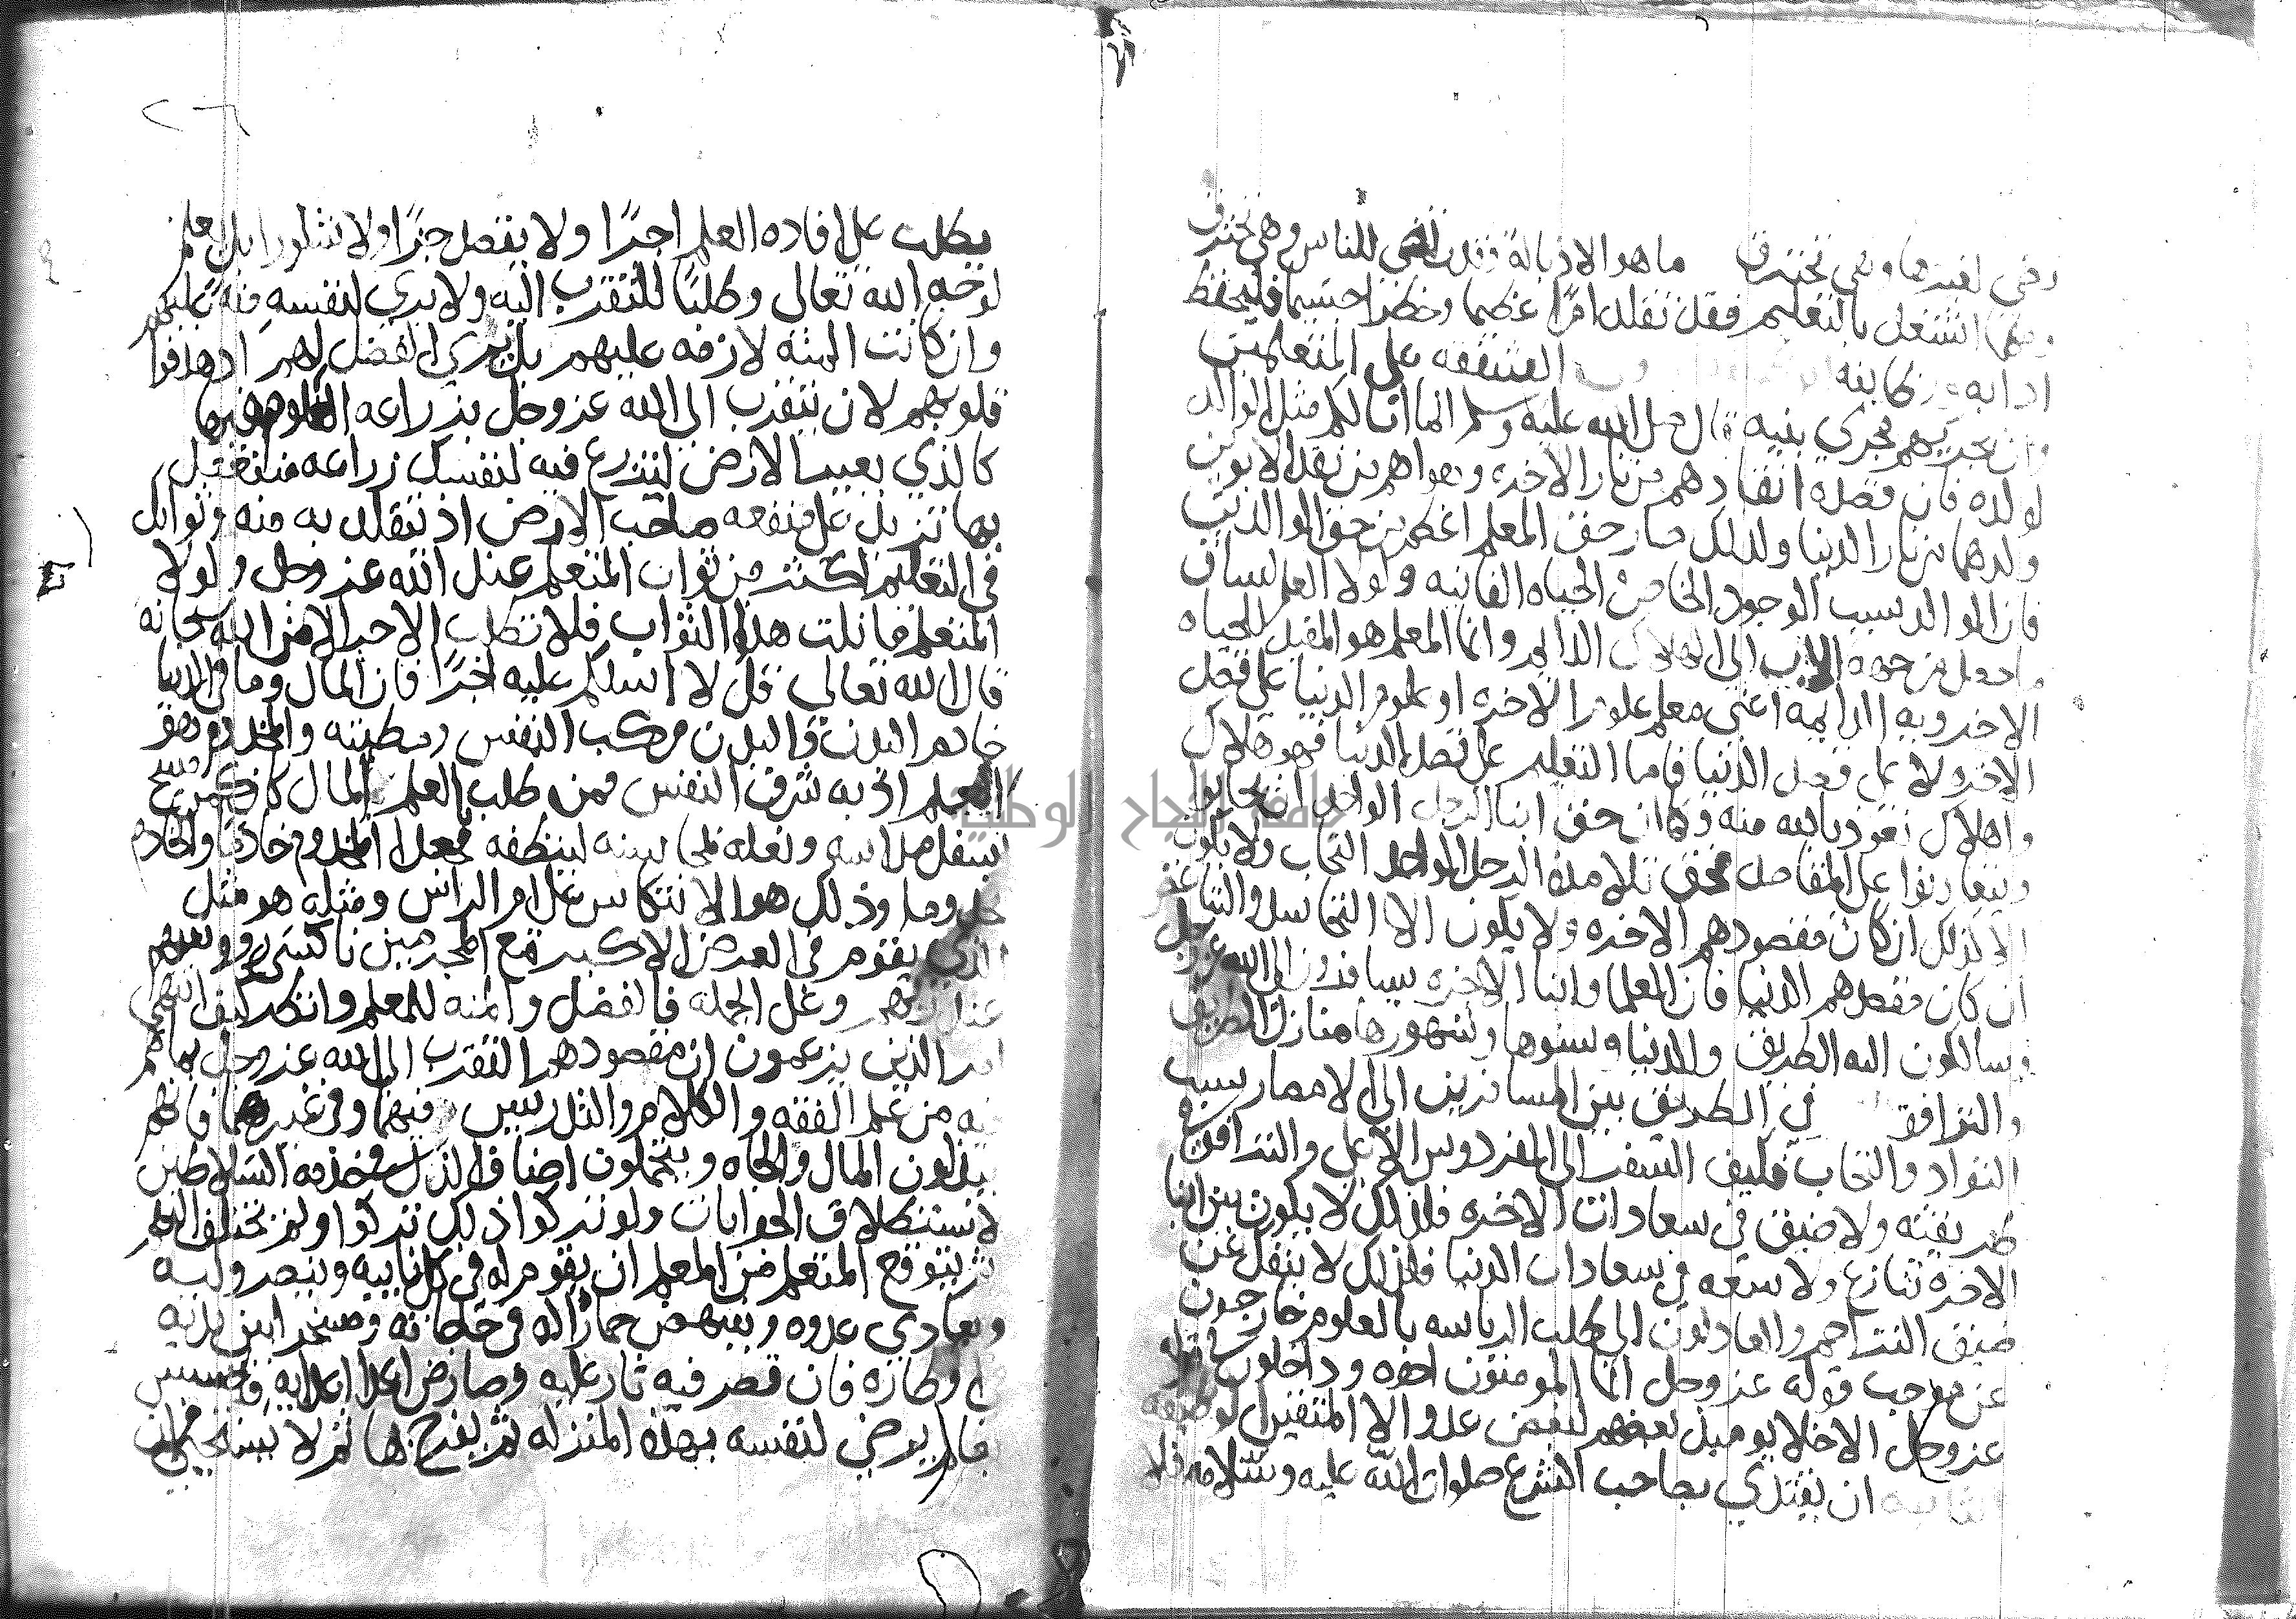 تضي لغيرها وهي تحترق ما هو الا ذبالة وقدت تضي للناس وهي تحترق
ومهما اشتغل بالتعليم فقد تقلد امرًا عظيما وخطرا جسيما فليحفظ
ادابه ووظايفه الشفقه على المتعلمين
وان يجريهم مجري بنيه قال صلى الله عليه وسلم انما انا لكم مثل الوالد
لولده فان قصده انقاذهم من نار الاخره وهو اهم من نقذ الابوين
ولدهما من نار الدنيا ولذلك صار حق المعلم اعظم من حق الوالدين
فان الوالد سبب الوجود الخاص والحياه الفانيه ولولا العلم لساق
ما حصل من جهه الاب الى الهلاك الدايم وانما المعلم هو المفيد للحياه
الاخرويه الدايمه اعني معلم علوم الاخره او علوم الدنيا على قصد
الاخره لا على قصد الدنيا فاما التعليم على قصد الدنيا فهو هلاك
واهلاك نعوذ بالله منه وكما ان حق ابنا الرجل الواحد ان يتحابوا
ويتعاونوا على المقاصد فحق تلامذه الرجل الواحد التحاب ولا يكون
الا كذلك ان كان مقصودهم الاخره ولا يكون الا التحاسد والتباغض
ان كان مقصدهم الدنيا فان العلما وابنا الاخره مسافرون الى الله عز وجل
وسالكون اليه الطريق والدنيا وسنوها وشهورها منازل الطريق
والترافق في الطريق بين المسافرين الى الامصار سبب
التواد والتحاب فكيف السفر الى الفردوس الاعلى والترافق في
طريقته ولا ضيق في سعادات الاخره فلذلك لا يكون بين ابنا
الاخره تنازع ولا سعه في سعادات الدنيا فلذلك لا ينفك عن
ضيق التزاحم والعادلون الى طلب الرياسه بالعلوم خارجون
عن موجب قوله عز وجل انما المومنون اخوه وداخلون في قوله
عز وجل الاخلا يوميذ بعضهم لبعض عدو الا المتقين الوظيفه
الثانيه ان يقتدي بصاحب الشرع صلوات الله عليه وسلامه فلا
يطلب على افاده العلم اجرًا ولا يقصد جزًا ولا شكورا بل يعلم
لوجه الله تعالى وطلبًا للتقرب اليه ولا يري لنفسه منه عليهم
وان كانت المنه لازمه عليهم بل يري الفضل لهم اذ هذفوا
قلوبهم لان تتقرب الى الله عز وجل بزراعه العلوم فيها
كالذي يعيرك الارض لتزرع فيه لنفسك زراعه فمنفعتك
بها تزيد على منفعه صاحب الارض اذ تتقلد به منه وثوابك
في التعليم اكثر من ثواب المتعلم عند الله عز وجل ولولا
المتعلم ما نلت هذا الثواب فلا تطلب الاجر الا من الله سبحانه
قال الله تعالى قل لا اسلكم عليه اجرًا فان المال وما في الدنيا
خادم البدن والبدن مركب النفس ومطيته والمخدوم هو
العلم اذ به شرف النفس فمن طلب بالعلم المال كان كمن مسح
اسفل مداسه ونعله بمحاسنه لينظفه فجعل المخدوم خادمًا والخادم
مخدوما وذلك هو الانتكاس على ام الراس ومثله هو مثل
الذي يقوم في العرض الاكبر مع المجرمين ناكسي رووسهم
عند ربهم وعلى الجمله فالفضل والمنه للمعلم وانظر كيف انتهى
امر الذين يزعمون ان مقصودهم التقرب الى الله عز وجل بما هم
فيه من علم الفقه والكلام والتدريس فيهما وفي غيرهما فانهم
يبذلون المال والجاه ويتحملون اصناف الذل في خدمه السلاطين
لاستطلاق الجرايات ولو تركوا ذلك تركوا ولم يختلف اليهم
ثم يتوقع المتعلم من المعلم ان يقوم له في كل نايبه وينصر وليه
ويعادي عدوه وينهض حمارًا له في حاجاته ومسخرا بين يديه
في اوطاره فان قصر فيه ثار عليه وصار من اعدا اعدايه فاخسس
بعالم يرضي لنفسه بهذه المنزله ثم يفرح بها ثم لا يستحيي من ان
جامعة النجاح الوطنية